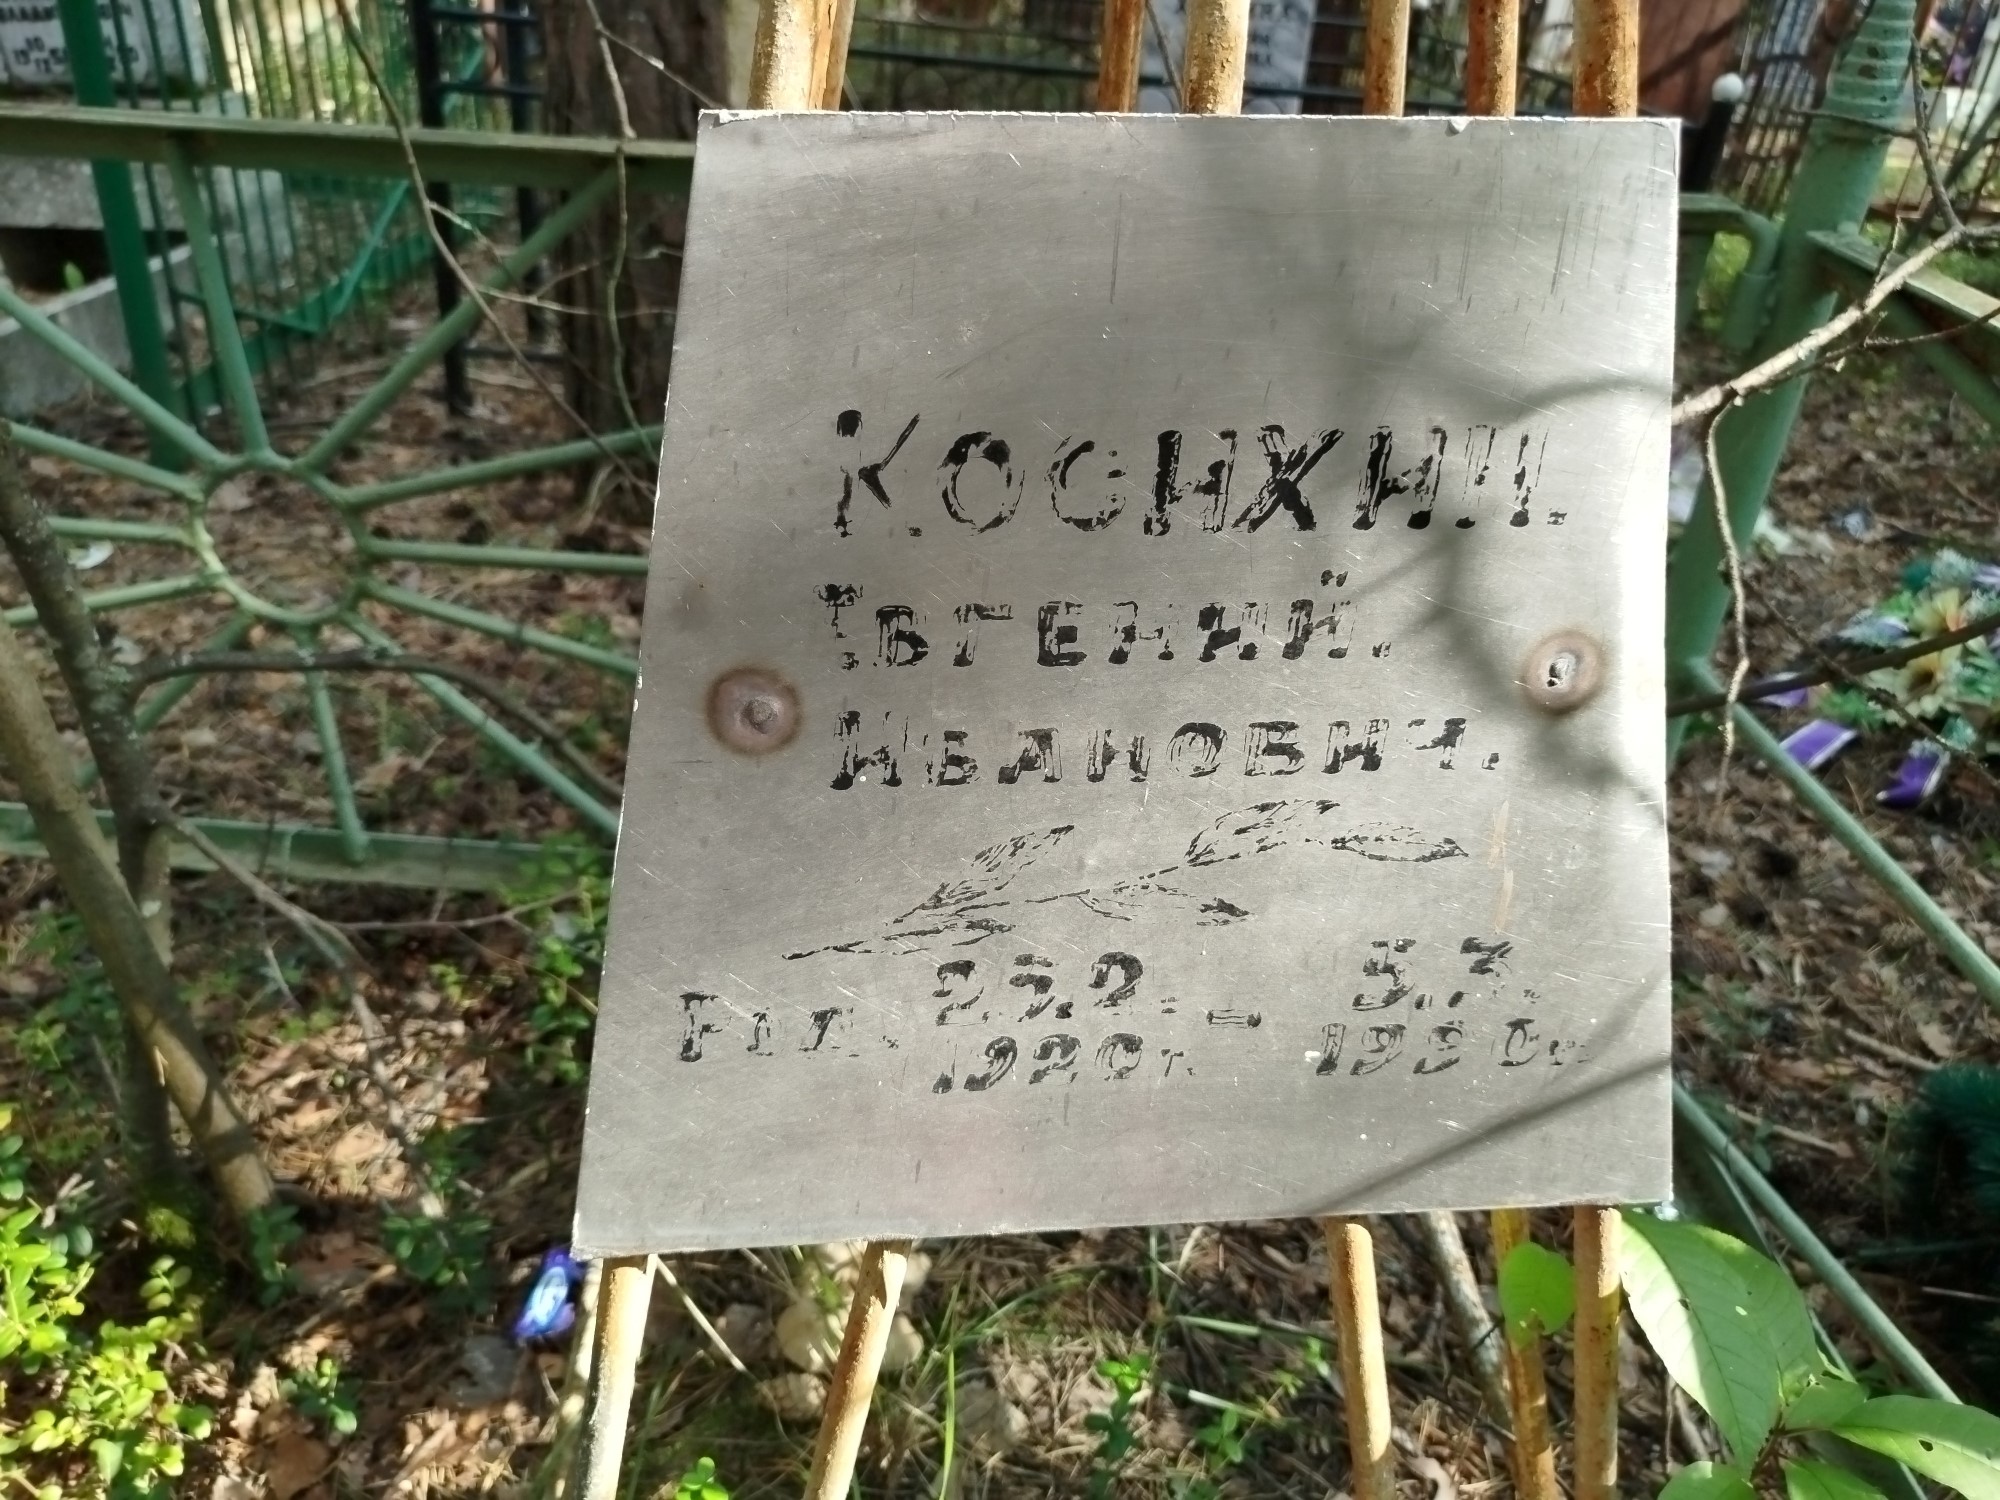 Косихин.
Евгений.
Иванович.
Род. 25.2. – 5.7.
1920г. 1990г.